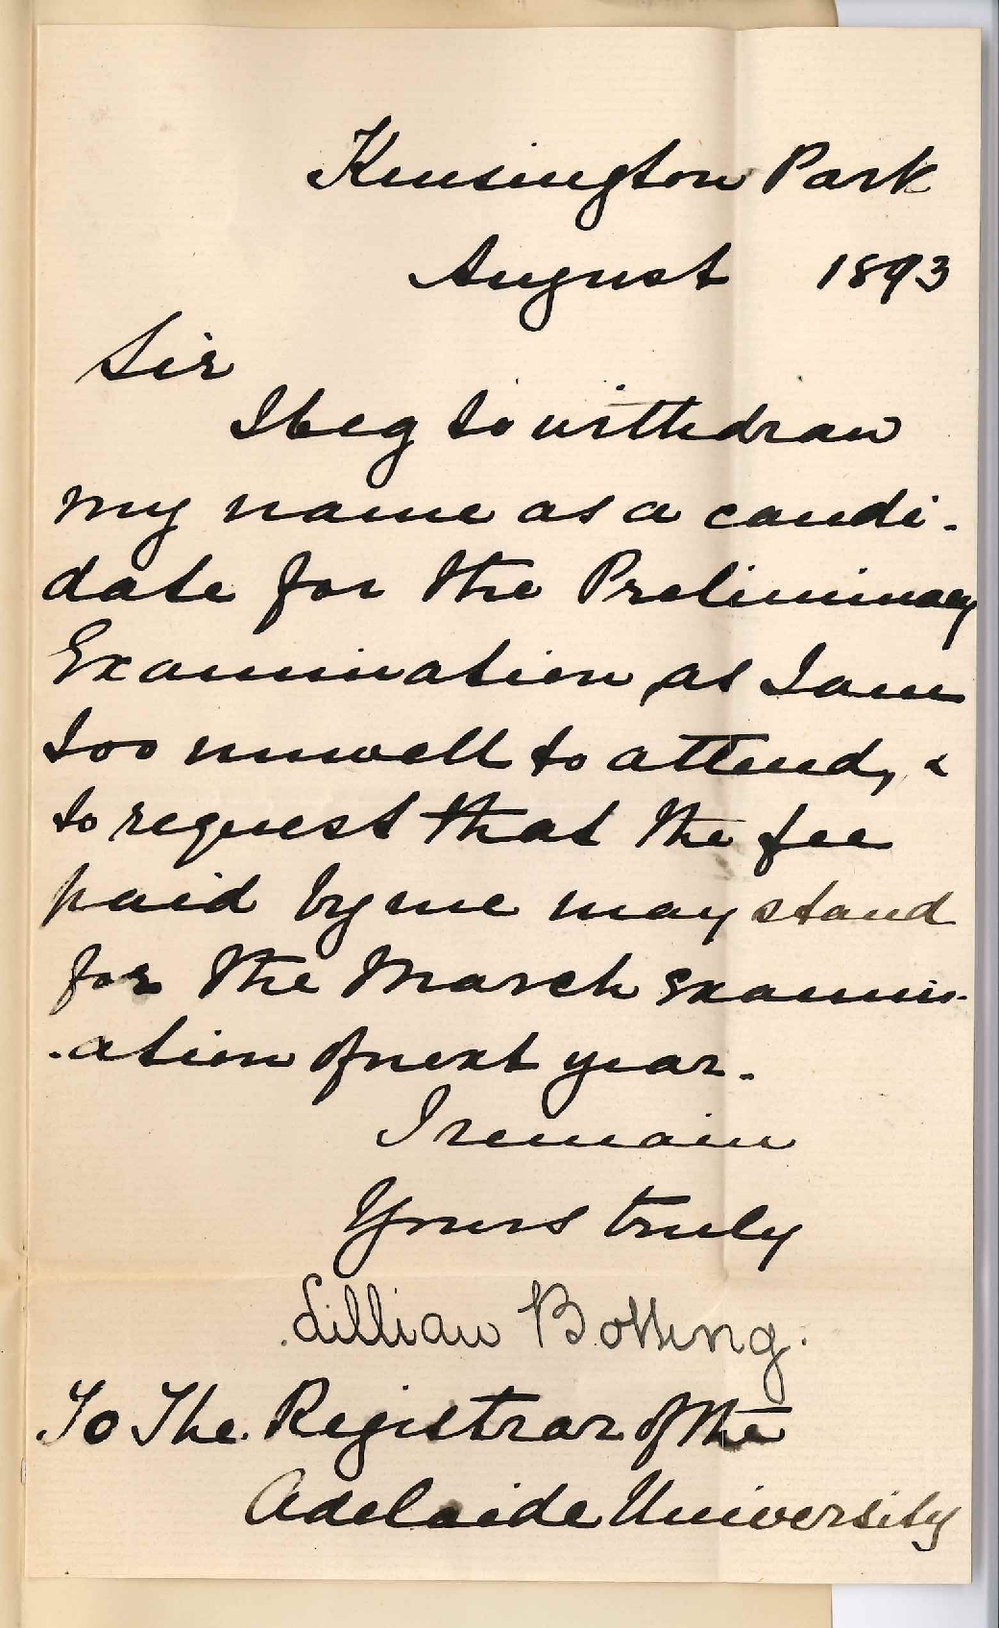 Kensington Park
August 1893
Sir
I beg to withdraw
my name as a candi-
date for the Preliminary
Examination, as I am
too unwell to attend, &
to request that the fee
paid by me may stand
for the March Examin-
-ation of next year.
I remain
Yours truly
Lillian Botting.
To The Registrar of the
Adelaide University